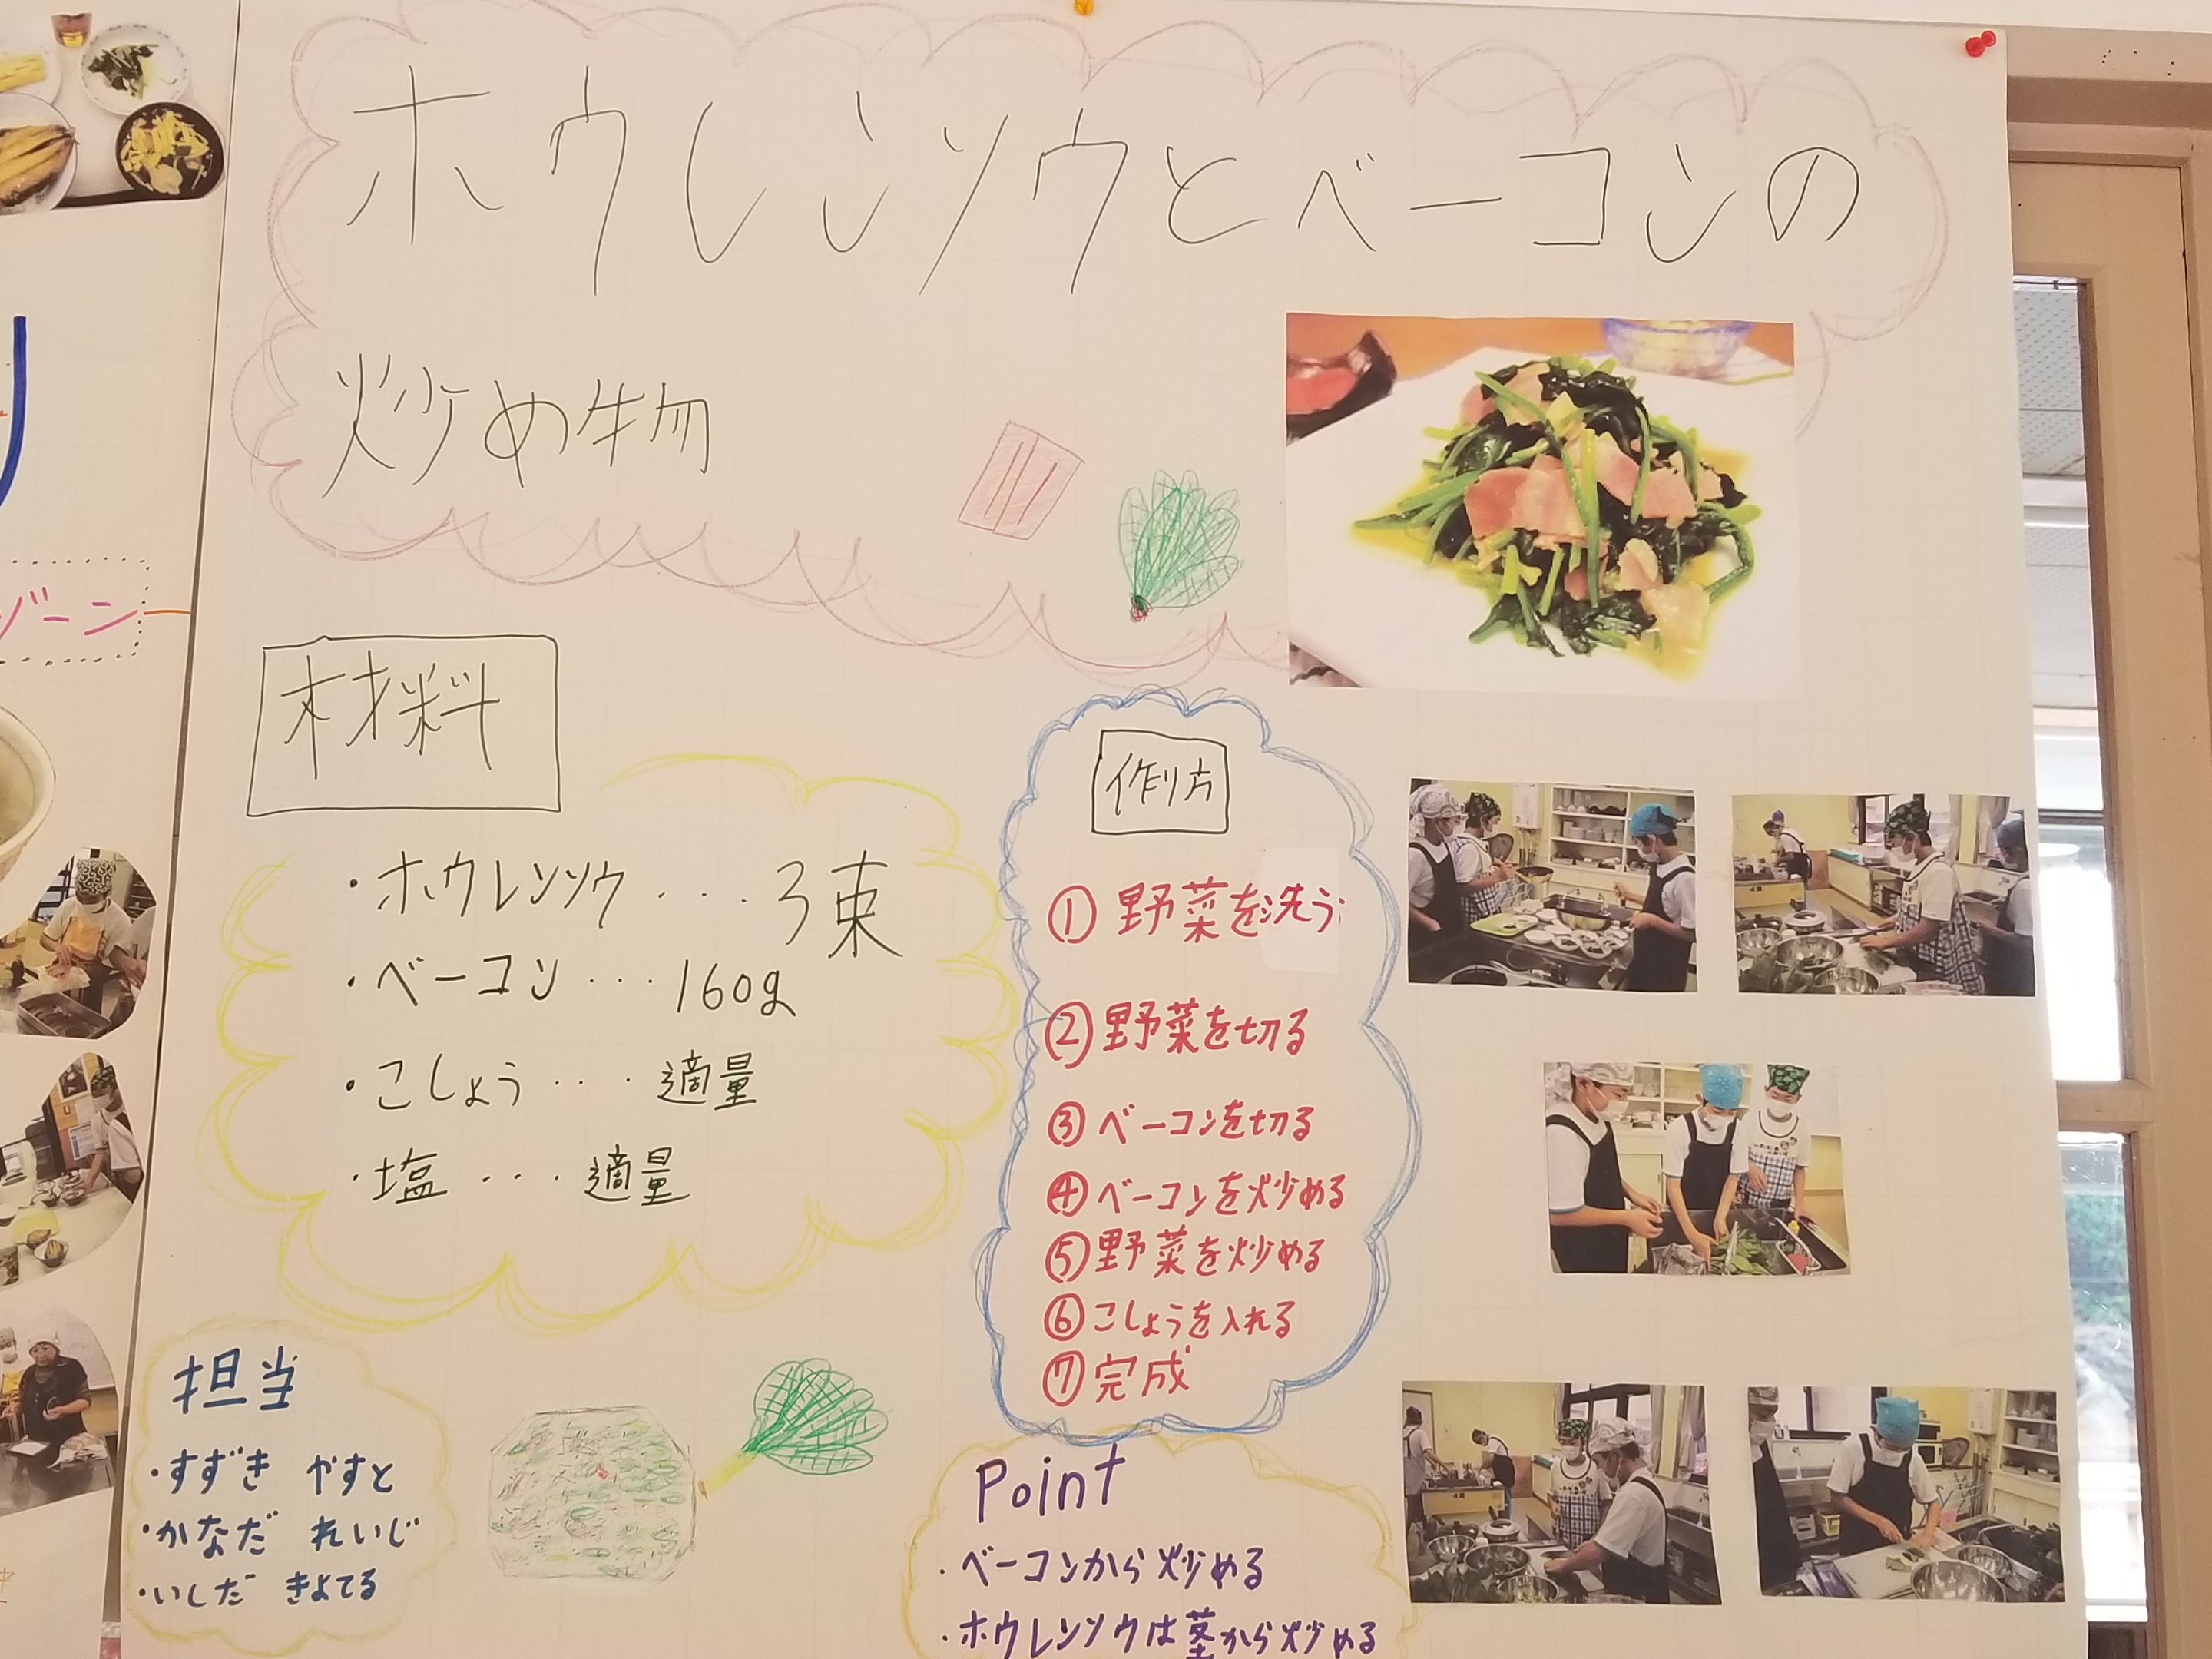 ホウレンソウとベーコンの
炒め物
材料
・ホウレンソウ・・・3束
・ベーコン・・・160g
・こしょう・・・適量
・塩・・・適量
作り方
①野菜を洗う
②野菜を切る
③ベーコンを切る
④ベーコンを炒める
⑤野菜を炒める
⑥こしょうを入れる
⑦完成
Point
・ベーコンから炒める
・ホウレンソウは茎から炒める
担当
・すずき やすと
・かなだ れいじ
・いしだ きよてる
ゾーン